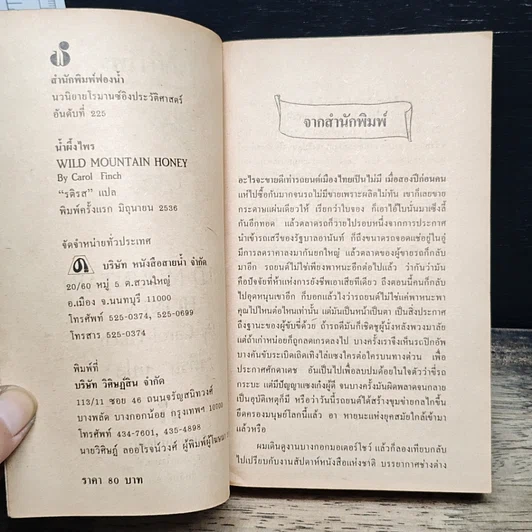 สำนักพิมพ์ฟองน้ำ
นวนิยายโรมานซ์อิงประวัติศาสตร์
อันดับที่ 225
น้ำผึ้งไพร
WILD MOUNTAIN HONEY
By Carol Finch
"รติรส" แปล
พิมพ์ครั้งแรก มิถุนายน 2536
จัดจำหน่ายทั่วประเทศ
บริษัท หนังสือสายน้ำ จำกัด
20/60 หมู่ 5 ต.สวนใหญ่
อ.เมือง จ.นนทบุรี 11000
โทรศัพท์ 525-0374, 525-0699
โทรสาร 525-0374
พิมพ์ที่
บริษัท วิศิษฎ์สิน จำกัด
113/11 ซอย 46 ถนนจรัญสนิทวงศ์
บางพลัด บางกอกน้อย กรุงเทพฯ 10700
โทรศัพท์ 434-7601, 435-4898
นายวิศิษฎ์ ลออโรจน์วงศ์ ผู้พิมพ์ผู้โฆษณา
ราคา 80 บาท
จากสำนักพิมพ์
อะไรจะขายดีเท่ารถยนต์เมืองไทยเป็นไม่มี เมื่อสองปีก่อนคน
แห่ไปซื้อกันมากจนรถไม่มีขายเพราะผลิตไม่ทัน เขาก็เลยขาย
กระดาษแผ่นเดียวให้ เรียกว่าใบจอง ก็เอาไอ้ใบนั่นมาซึ่งลี้
กันอีกทอด แล้วตลาดรถก็วายไปรอบหนึ่งจากการประกาศ
นำเข้ารถเสรีของรัฐบาลอานันท์ ก็ถึงขนาดรถจอดแช่อยู่ในอู่
มีการลดราคาลงมากันยกใหญ่ แล้วตลาดของผู้ขายรถก็กลับ
มาอีก รถยนต์ไม่ใช่เพียงพาหนะอีกต่อไปแล้ว ว่ากันว่ามัน
คือปัจจัยที่ห้าแห่งการยังชีพเอาเสียทีเดียว ถึงตอนนี้คนก็กลับ
ไปอุดหนุนเขาอีก ก็บอกแล้วไงว่ารถยนต์ไม่ใช่แค่พาหนะพา
คุณไปไหนต่อไหนเท่านั้น แต่มันเป็นหน้าเป็นตา เป็นสิ่งประกาศ
ถึงฐานะของผู้ขับขี่ด้วย ถ้ารถดีมันก็เชิดชูผู้นั่งหลังพวงมาลัย
แต่ถ้าเก่าหน่อยก็ถูกลดเกรดลงไป บางครั้งเราจึงเห็นรถปิกอัพ
บางคันขับระเบิดเถิดเทิงไล่แซงใครต่อใครบนทางด่วน เพื่อ
ประกาศศักดาเดช อันเป็นไปเพื่อลบปมด้อยในใจตัวว่าขี่รถ
กระบะ แต่มีปัญญาแซงเก๋งผู้ดี จนบางครั้งมันผิดพลาดจนกลาย
เป็นอุบัติเหตุก็มี หรือว่าวันนี้รถยนต์ได้สร้างขุมข่ายกลไกขึ้น
ยึดครองมนุษย์โลกนี้แล้ว อา หายนะแห่งยุคสมัยใกล้เข้ามา
แล้วหรือ
ผมเดินดูงานบางกอกมอเตอร์โชว์ แล้วก็ลองเทียบกลับ
ไปเปรียบกับงานสัปดาห์หนังสือแห่งชาติ บรรยากาศช่างต่าง